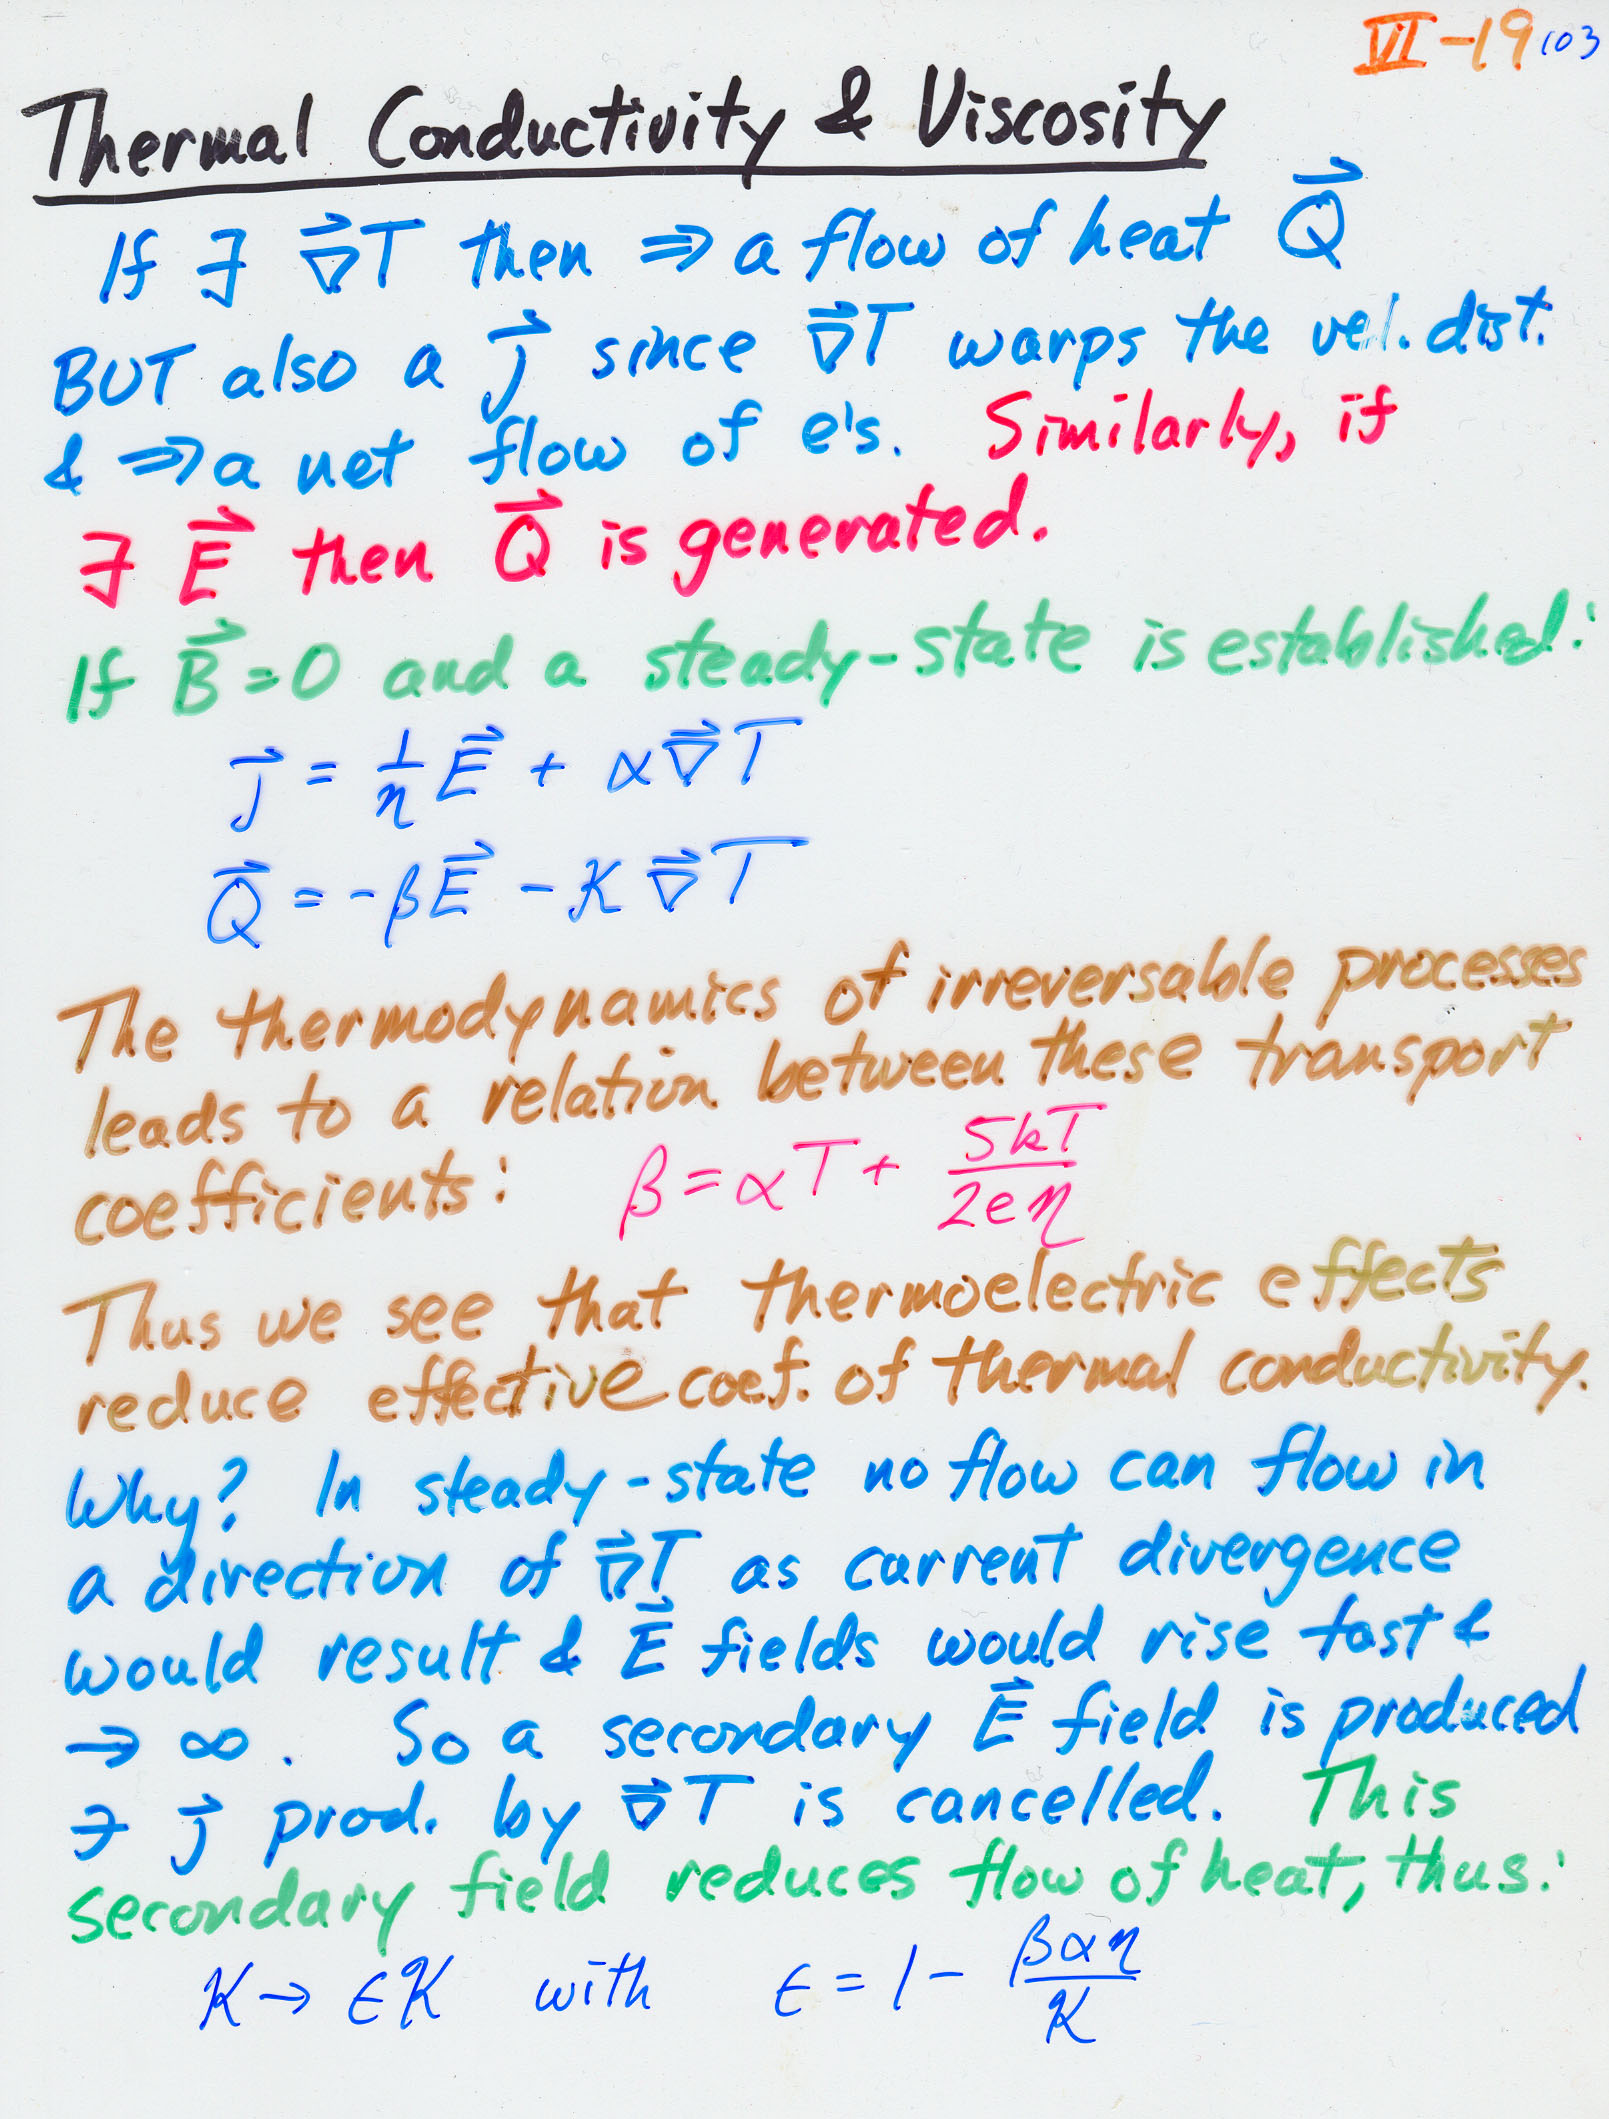 VI-19 103
Thermal Conductivity & Viscosity
If ∃ ∇⃗T then ⇒ a flow of heat Q⃗
BUT also a j⃗ since ∇⃗T warps the vel. dist.
& ⇒ a net flow of e's. Similarly, if
∃ E⃗ then Q⃗ is generated.
If B⃗=0 and a steady-state is established:
j⃗ = 1/η E⃗ + α∇⃗T
Q⃗ = -βE⃗ - K∇⃗T
The thermodynamics of irreversable processes
leads to a relation between these transport
coefficients: β = αT + 5kT/2eη
Thus we see that thermoelectric effects
reduce effective coef. of thermal conductivity.
Why? In steady-state no flow can flow in
a direction of ∇⃗T as current divergence
would result & E⃗ fields would rise fast &
→ ∞. So a secondary E⃗ field is produced
∋ j⃗ prod. by ∇⃗T is cancelled. This
secondary field reduces flow of heat, thus:
K → ϵK with ϵ = 1 - βαη/K